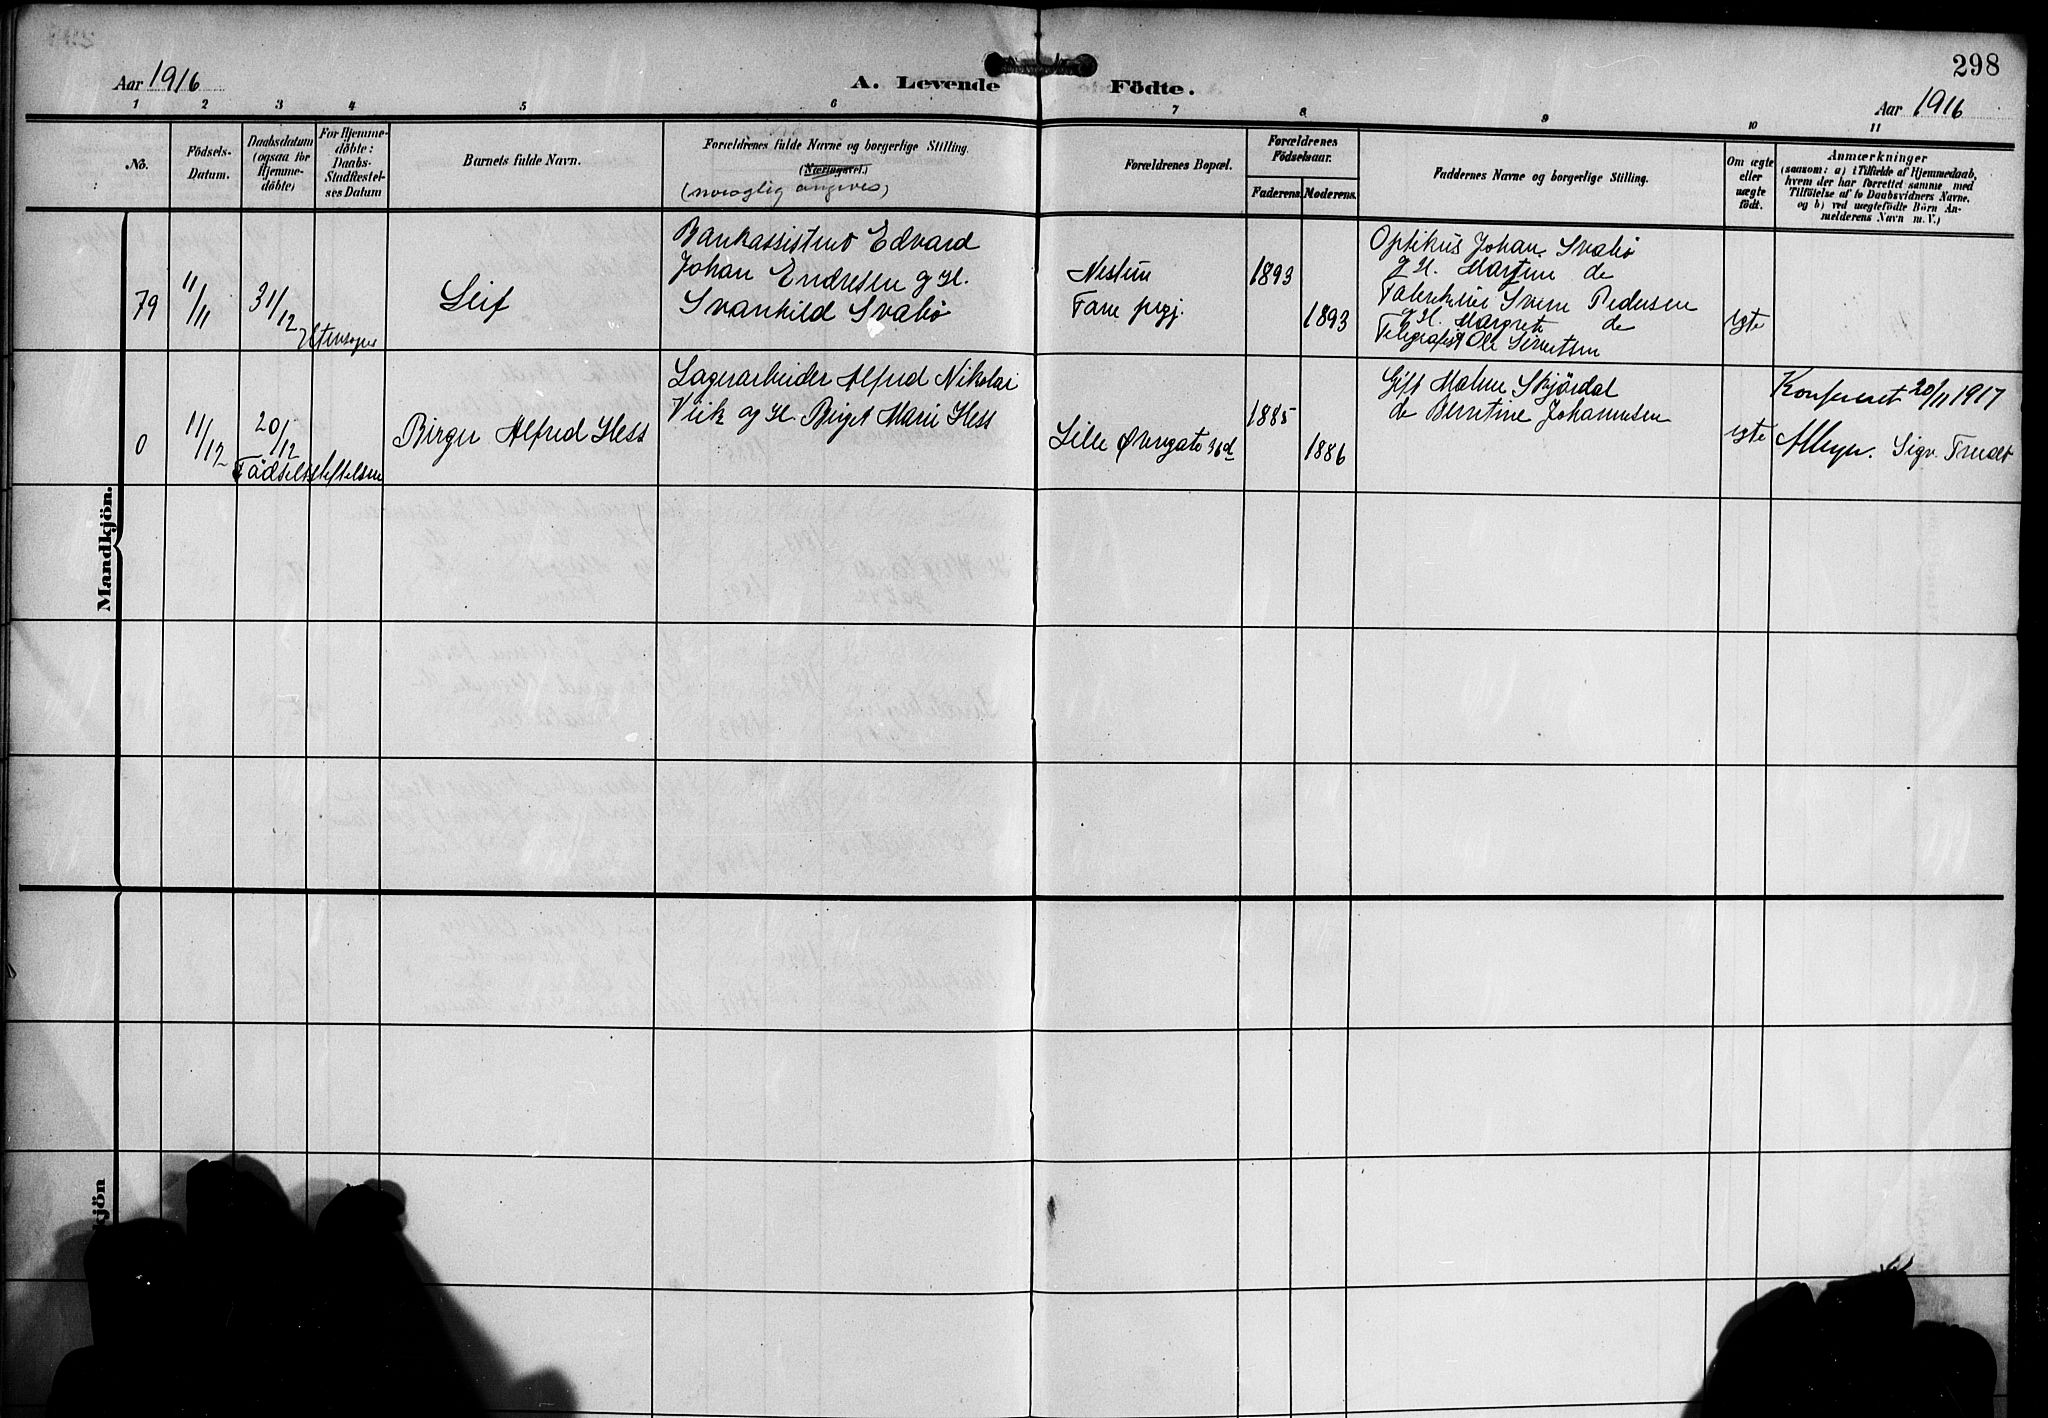 298
Aar 1916
A. Levende Födte.
Aar 1916
1 2 3 4 5 6 7 8 9 10 11
No.
Födsels-
Datum.
Daabsdatum
(ogsaa for
Hjemme-
döbte)
For Hjemme-
döbte:
Daabs-
Stadfæstel-
ses Datum
Barnets fulde Navn.
Forældrenes fulde Navne og borgerlige Stilling.
(Næringsvei.)
(nøiagtig angives)
Forældrenes Bopæl.
Forældrenes
Födselsaar.
Faderens. Moderens.
Faddernes Navne og borgerlige Stilling.
Om ægte
eller
uægte
födt.
Anmærkninger
(saasom: a) i Tilfælde af Hjemmedaab,
hvem der har forrettet samme, med
Tilföielse af to Daabsvidners Navne,
og b) ved uægtefödte Börn An-
melderens Navn m. V.)
Mandkjön.
79
11/11
31/12
Leif
Bankassistent Edvard
Johan Endresen og H.
Svanhild Svabø
Nestun
Fane prgj.
1893
1893
Optikus Johan Svabø
g H. Martine de
Fabrikeier Sverre Pedersen
g H. Margrete de
Telegrafist Ole Sivertsen
ægte
0
11/12
20/12
Fødselsstiftelsen
Birger Alfred Hess
Lagerarbeider Alfred Nikolai
Viik og H. Birget Marie Hess
Lille Øvregate 36d
1885
1886
Gift Malene Skjördal
de Berntine Johannesen
ægte
Konfereret 20/11 1917
AMeyer. Sigv. Trædt
kjön